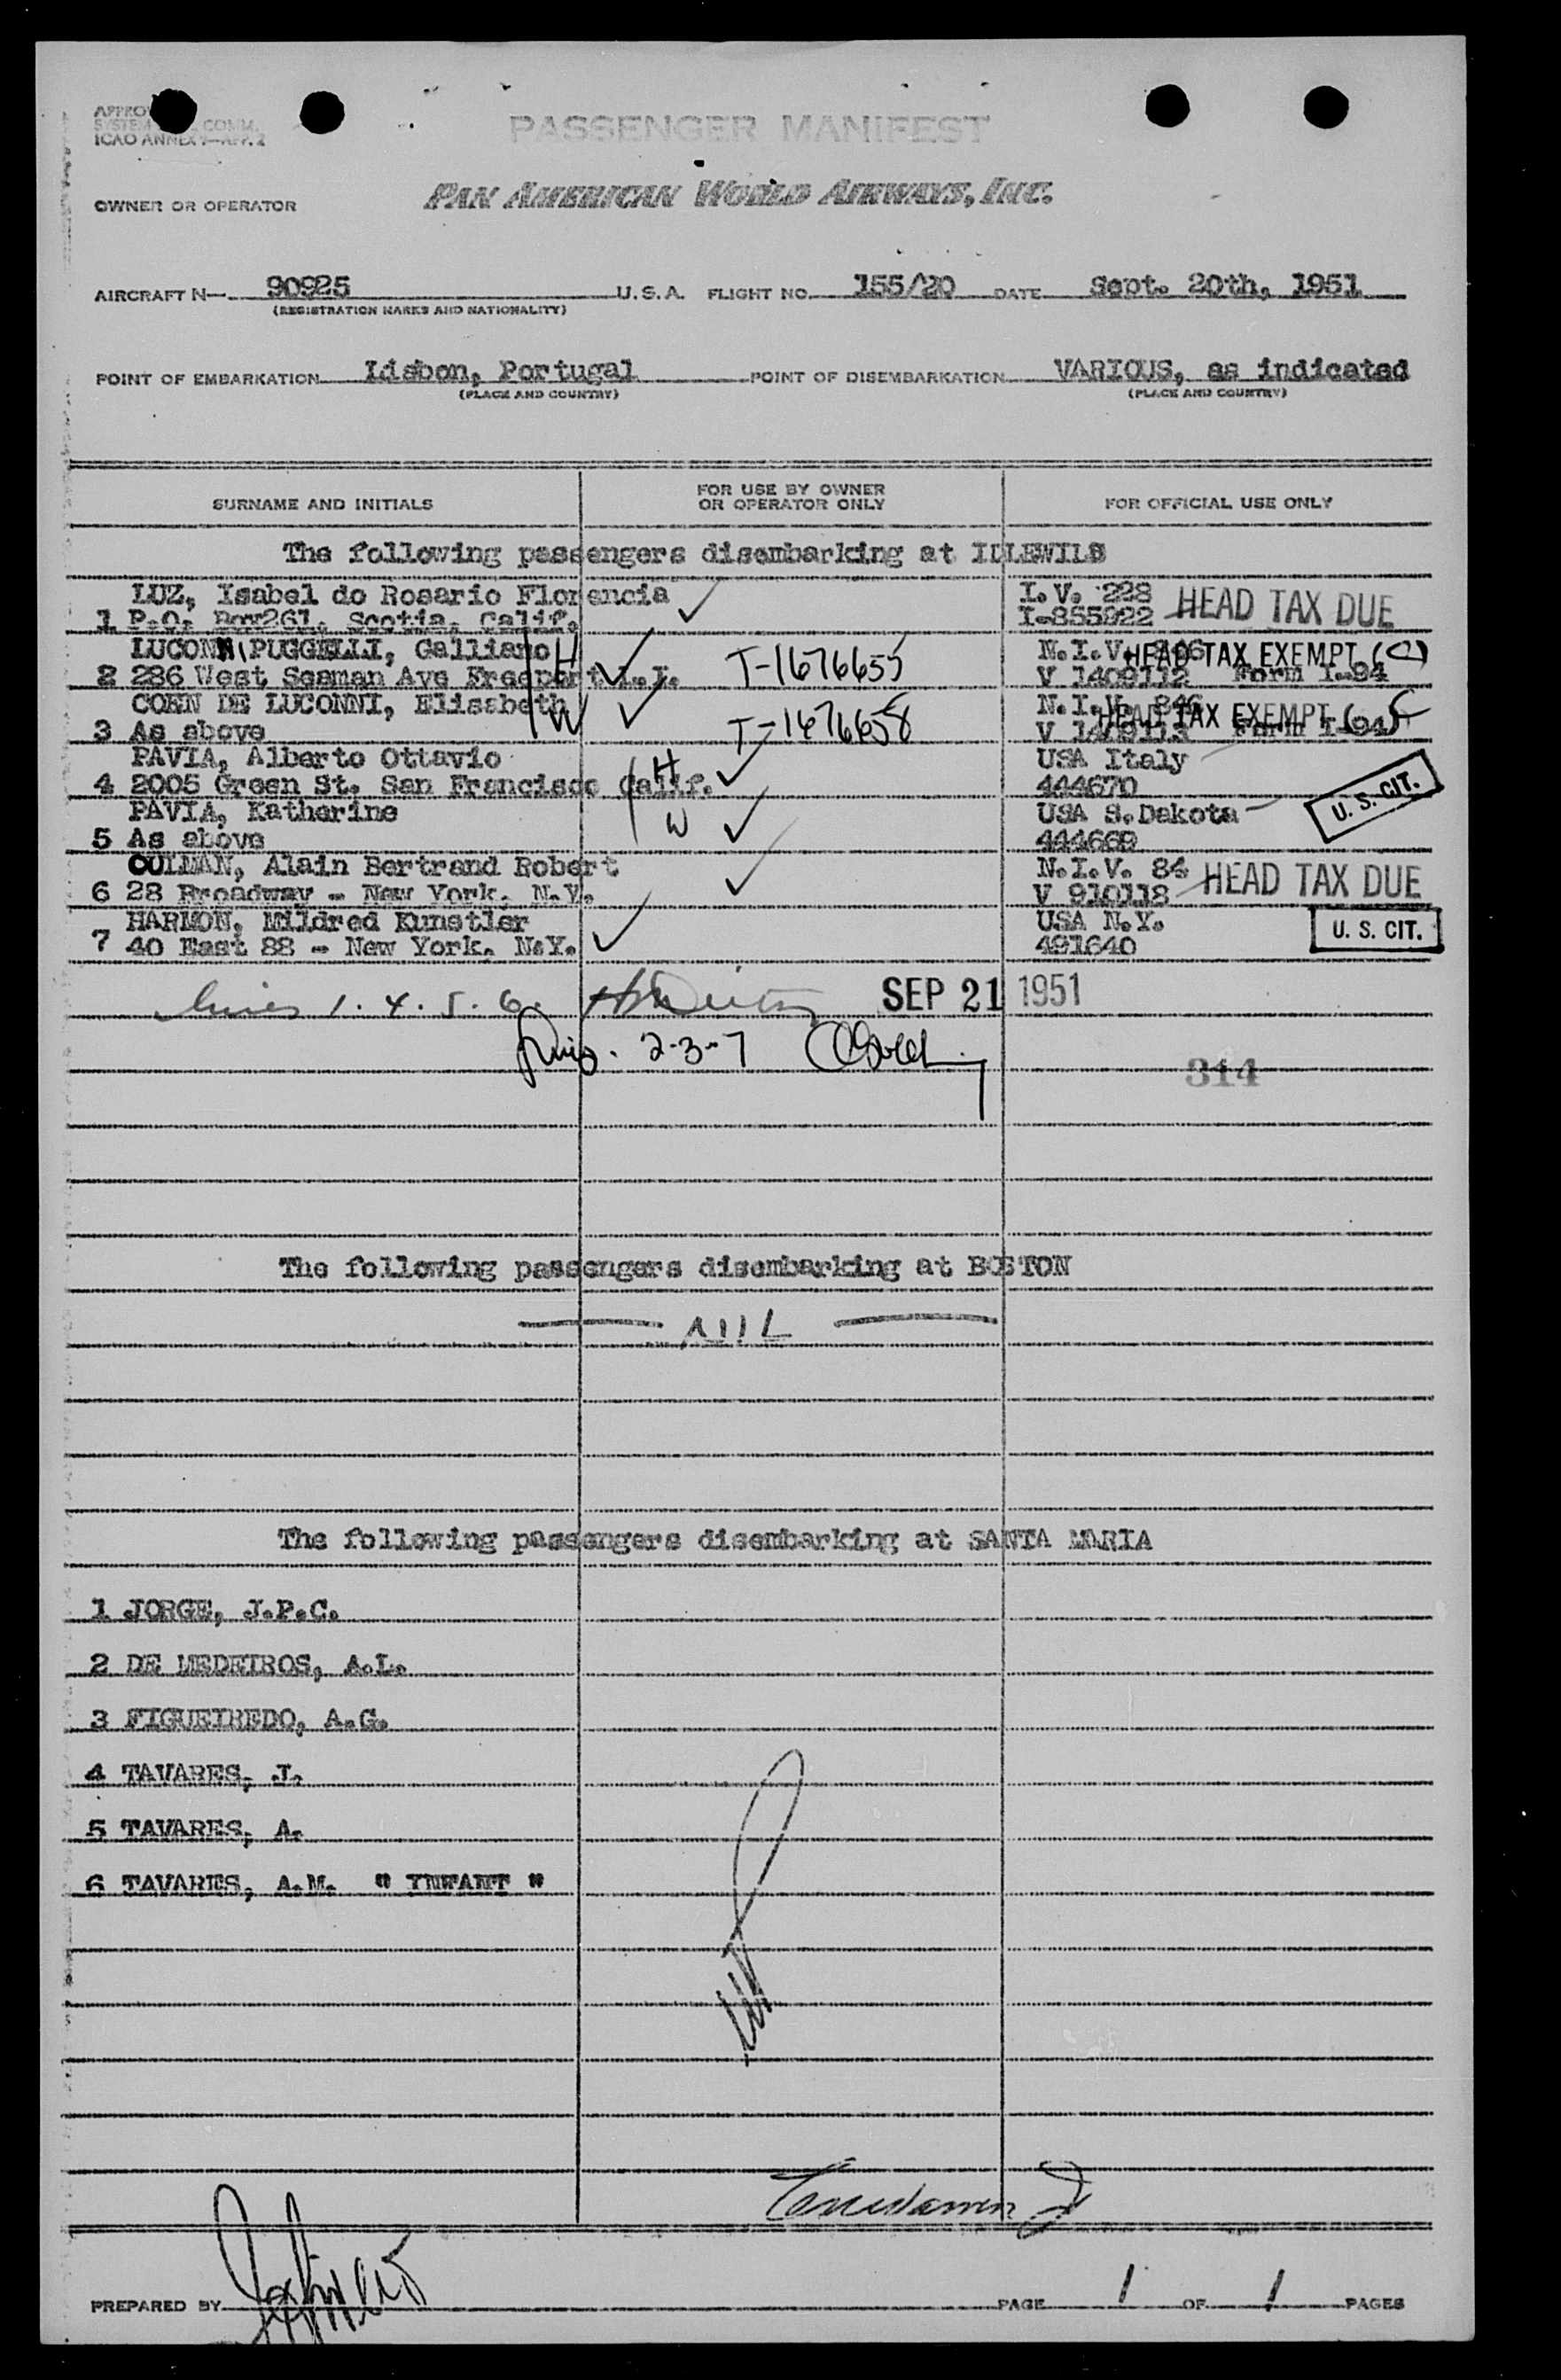 APPRO
SYSTEM COMM.
ICAO ANNEX 9—APP. 2
PASSENGER MANIFEST
OWNER OR OPERATOR PAN AMERICAN WORLD AIRWAYS, INC.
AIRCRAFT N— 90925 U.S.A. FLIGHT NO. 155/20 DATE Sept. 20th, 1951
(REGISTRATION MARKS AND NATIONALITY)
POINT OF EMBARKATION Lisbon, Portugal POINT OF DISEMBARKATION VARIOUS, as indicated
(PLACE AND COUNTRY) (PLACE AND COUNTRY)
SURNAME AND INITIALS FOR USE BY OWNER OR OPERATOR ONLY FOR OFFICIAL USE ONLY
The following passengers disembarking at IDLEWILD
LUZ, Isabel do Rosario Florencia I.V. 228
1 P.O. Box261, Scotia, Calif. I-855922 HEAD TAX DUE
LUCONNI PUGGELLI, Galliano H N.I.V. 846 HEAD TAX EXEMPT (C)
2 286 West Seaman Ave Freeport L.I. T-1676655 V 1409112 Form I-94
COEN DE LUCONNI, Elisabeth W N.I.V. 846 HEAD TAX EXEMPT (C)
3 As above T-1676658 V 1409113 Form I-94
PAVIA, Alberto Ottavio H USA Italy
4 2005 Green St. San Francisco Calif. 444670
PAVIA, Katherine W USA S.Dakota U. S. CIT.
5 As above 444669
CULMAN, Alain Bertrand Robert N.I.V. 84
6 28 Broadway - New York, N.Y. V 910118 HEAD TAX DUE
HARMON, Mildred Kunstler USA N.Y.
7 40 East 88 - New York, N.Y. 491640 U. S. CIT.
lines 1. 4. 5. 6. SEP 21 1951
2-3-7
314
The following passengers disembarking at BOSTON
NIL
The following passengers disembarking at SANTA MARIA
1 JORGE, J.P.C.
2 DE MEDEIROS, A.L.
3 FIGUEIREDO, A.G.
4 TAVARES, J.
5 TAVARES, A.
6 TAVARES, A.M. " INFANT "
PREPARED BY PAGE 1 OF 1 PAGES